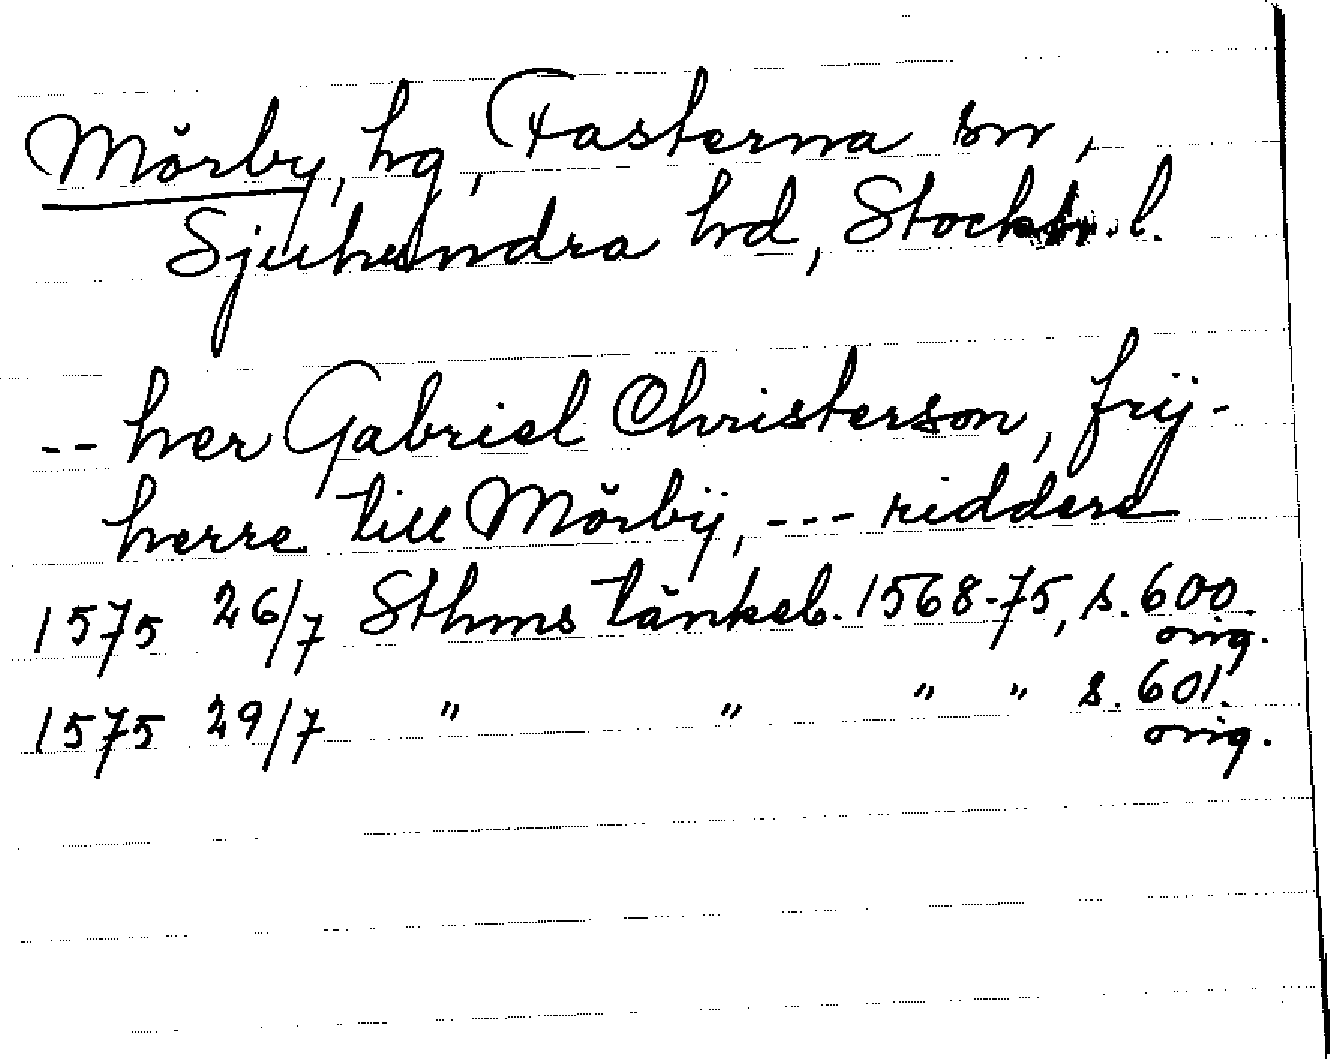 Mörby, hg, Fasterna sn,
Sjuhundra hd, Stockh. l.
-- her Gabriel Christerson, frij-
herre till Mörbÿ, --- riddere
1575 26/7 Sthms tänkeb. 1568-75, s. 600.
orig.
1575 29/7 " " " " s. 601.
orig.